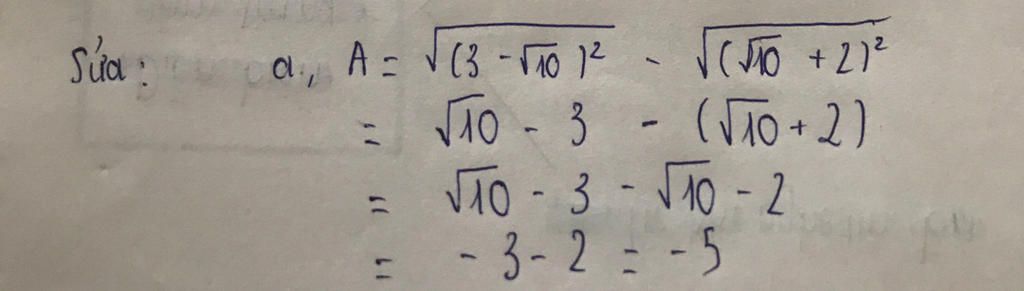 Sửa: a, A = √(3 - √10)² - √(√10 + 2)²
= √10 - 3 - (√10 + 2)
= √10 - 3 - √10 - 2
= - 3 - 2 = - 5